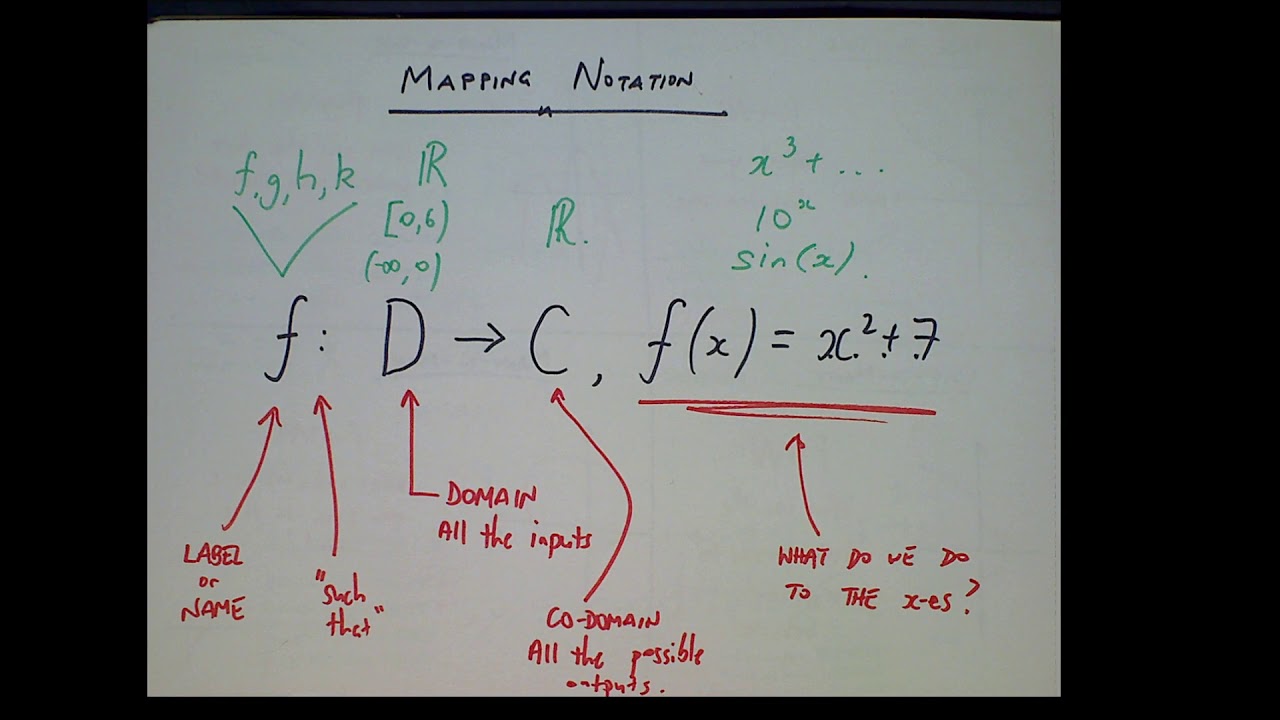 MAPPING NOTATION
f, g, h, k
ℝ
[0,6)
(-∞,0)
ℝ.
x³ + ...
10ˣ
sin(x).
f: D → C, f(x) = x² + 7
LABEL
or
NAME
"such
that"
DOMAIN
All the inputs
CO-DOMAIN
All the possible
outputs.
WHAT DO WE DO
TO THE x-es?